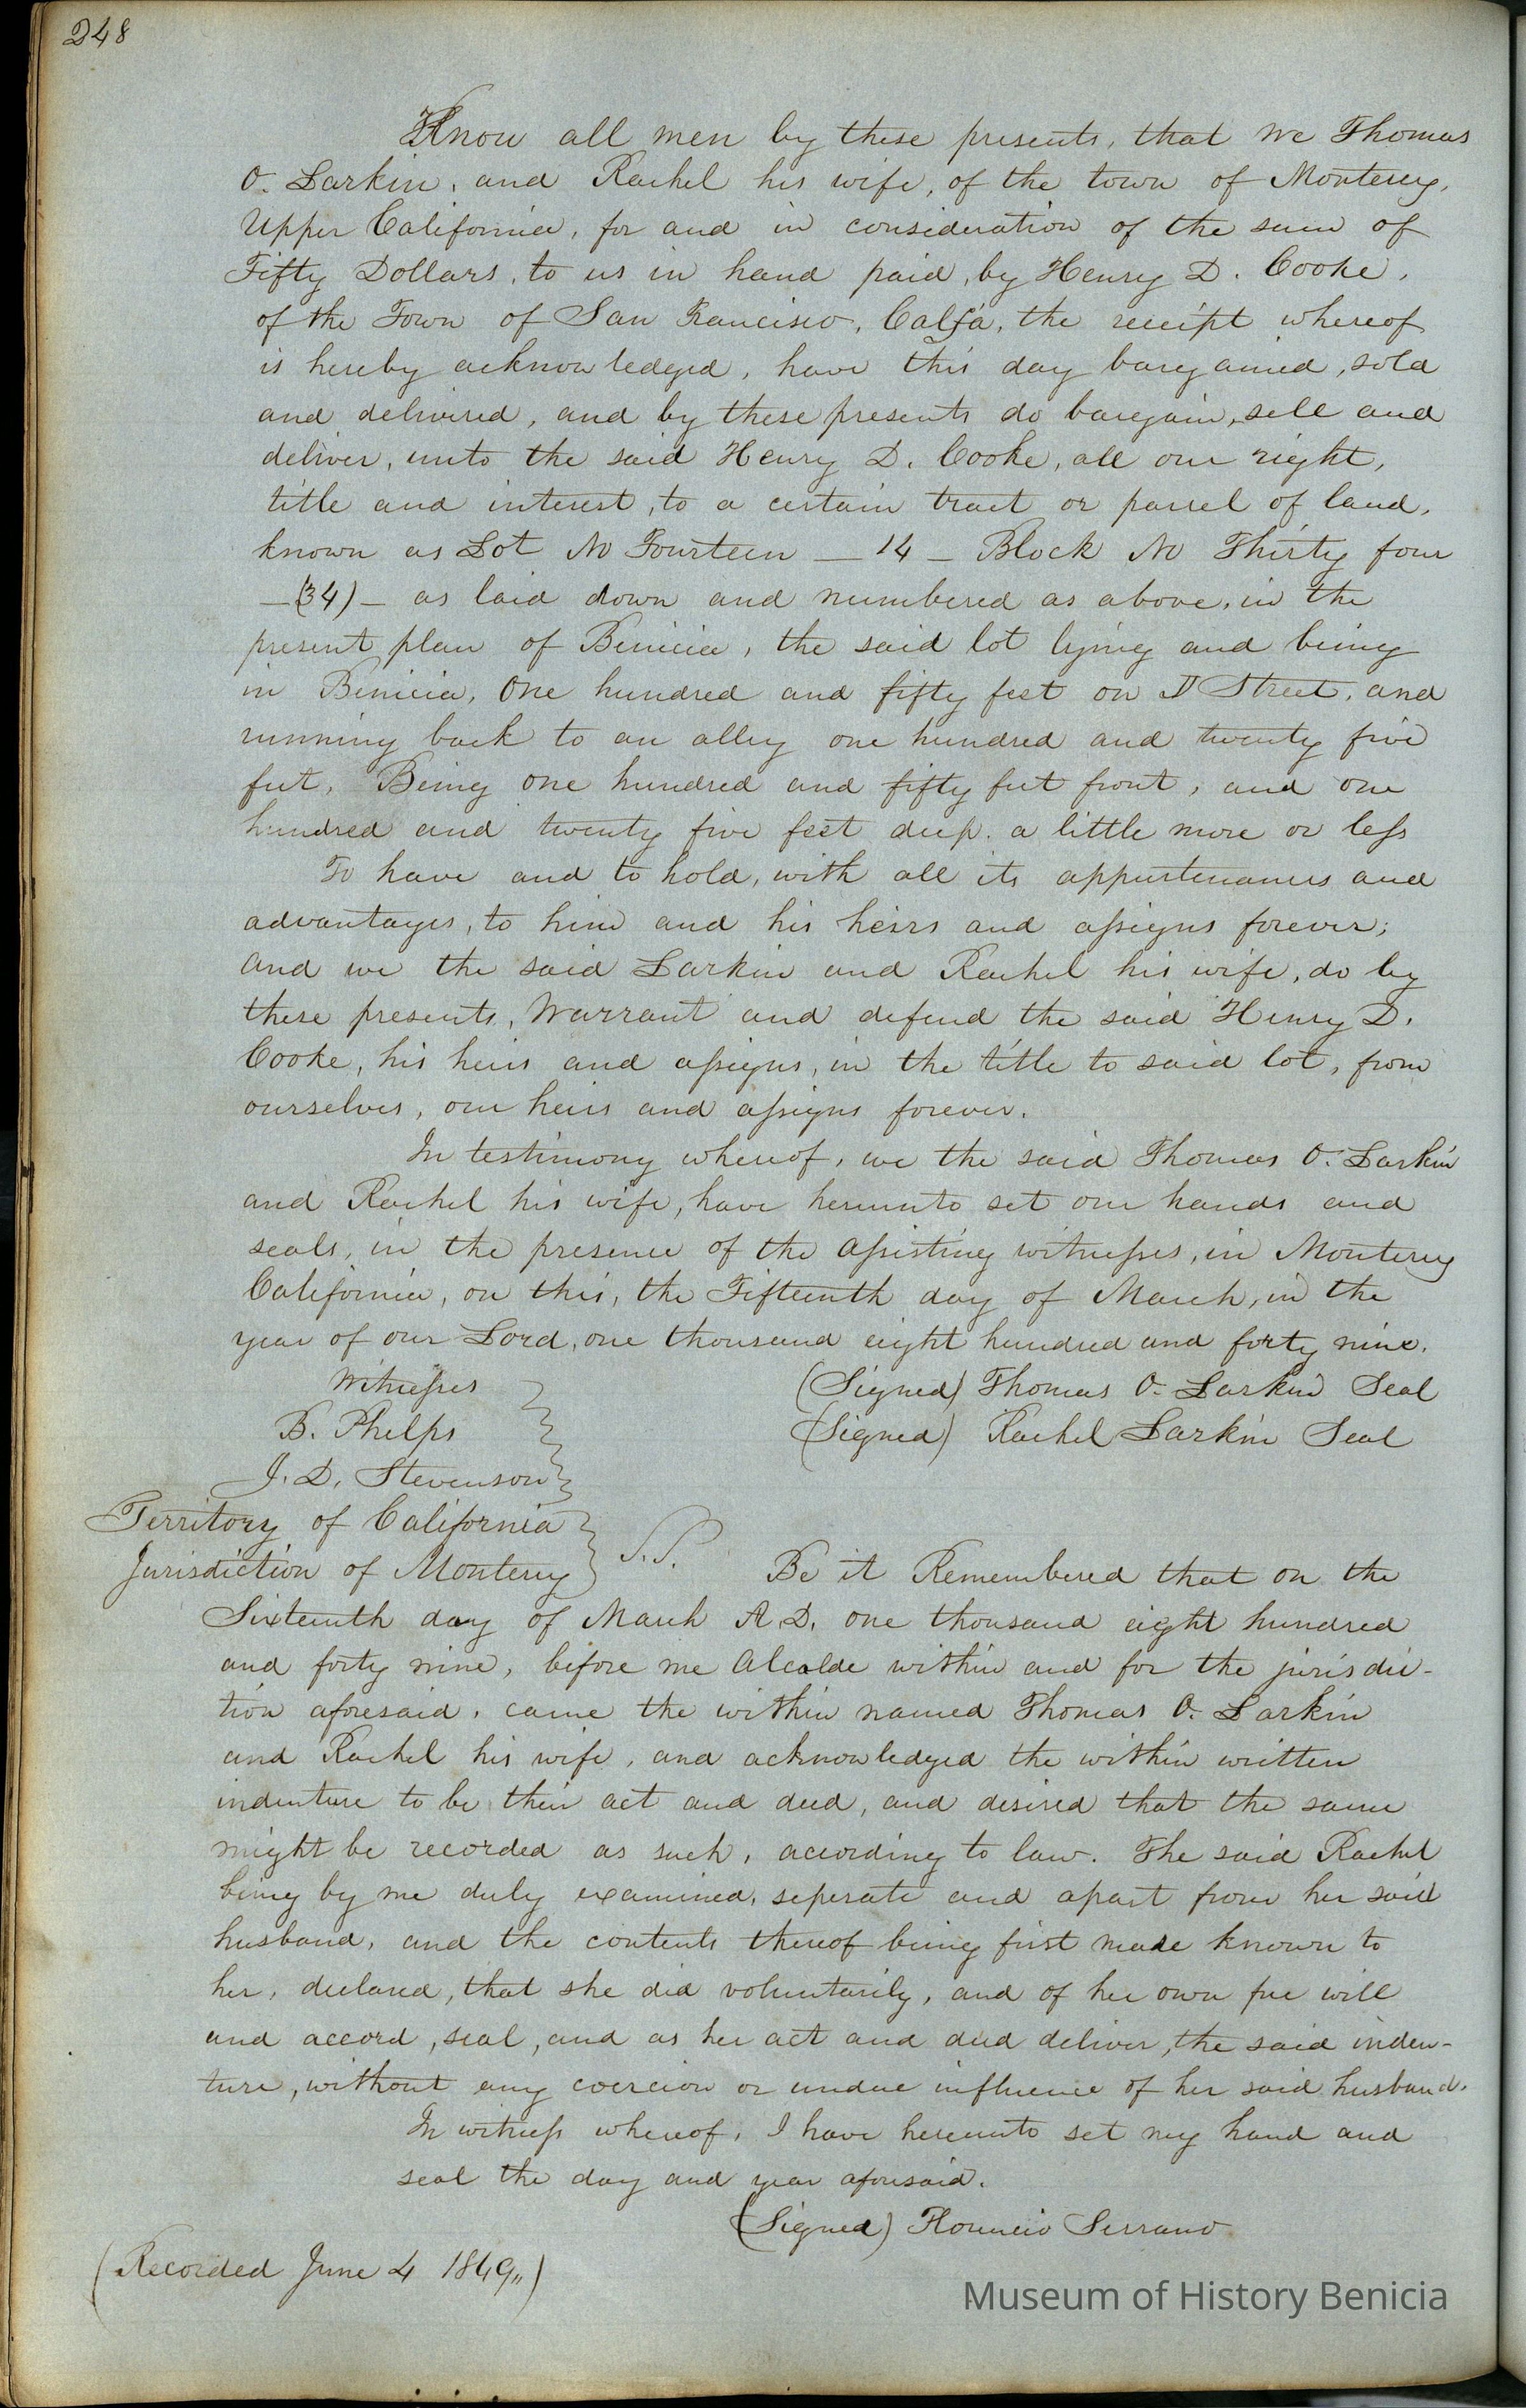 248
Know all men by these presents, that we Thomas
O. Larkin, and Rachel his wife, of the town of Monterey,
Upper California, for and in consideration of the sum of
Fifty Dollars, to us in hand paid, by Henry D. Cooke,
of the Town of San Francisco, Calfa, the receipt whereof
is hereby acknowledged, have this day bargained, sold
and delivered, and by these presents do bargain, sell and
deliver, unto the said Henry D. Cooke, all our right,
title and interest, to a certain tract or parcel of land,
known as Lot No Fourteen — 14 — Block No Thirty four
— (34) — as laid down and numbered as above, in the
present plan of Benicia, the said lot lying and being
in Benicia, One hundred and fifty feet on D Street, and
running back to an alley one hundred and twenty five
feet, Being one hundred and fifty feet front, and one
hundred and twenty five feet deep. a little more or less
To have and to hold, with all its appurtenances and
advantages, to him and his heirs and assigns forever;
and we the said Larkin and Rachel his wife, do by
these presents, Warrant and defend the said Henry D.
Cooke, his heirs and assigns, in the title to said lot, from
ourselves, our heirs and assigns forever.
In testimony whereof, we the said Thomas O. Larkin
and Rachel his wife, have hereunto set our hands and
seals, in the presence of the assisting witnesses, in Monterey
California, on this, the Fifteenth day of March, in the
year of our Lord, one thousand eight hundred and forty nine.
Witnesses (Signed) Thomas O. Larkin Seal
B. Phelps (Signed) Rachel Larkin Seal
J. D. Stevenson
Territory of California
Jurisdiction of Monterey } S.S. Be it Remembered that on the
Sixteenth day of March A.D. one thousand eight hundred
and forty nine, before me Alcalde within and for the jurisdic-
tion aforesaid, came the within named Thomas O. Larkin
and Rachel his wife, and acknowledged the within written
indenture to be their act and deed, and desired that the same
might be recorded as such, according to law. The said Rachel
being by me duly examined, seperate and apart from her said
husband, and the contents thereof being first made known to
her, declared, that she did voluntarily, and of her own free will
and accord, seal, and as her act and deed deliver, the said inden-
ture, without any coercion or undue influence of her said husband.
In witness whereof, I have hereunto set my hand and
seal the day and year aforesaid.
(Signed) Florencio Serrano
(Recorded June 4 1849,,)
Museum of History Benicia